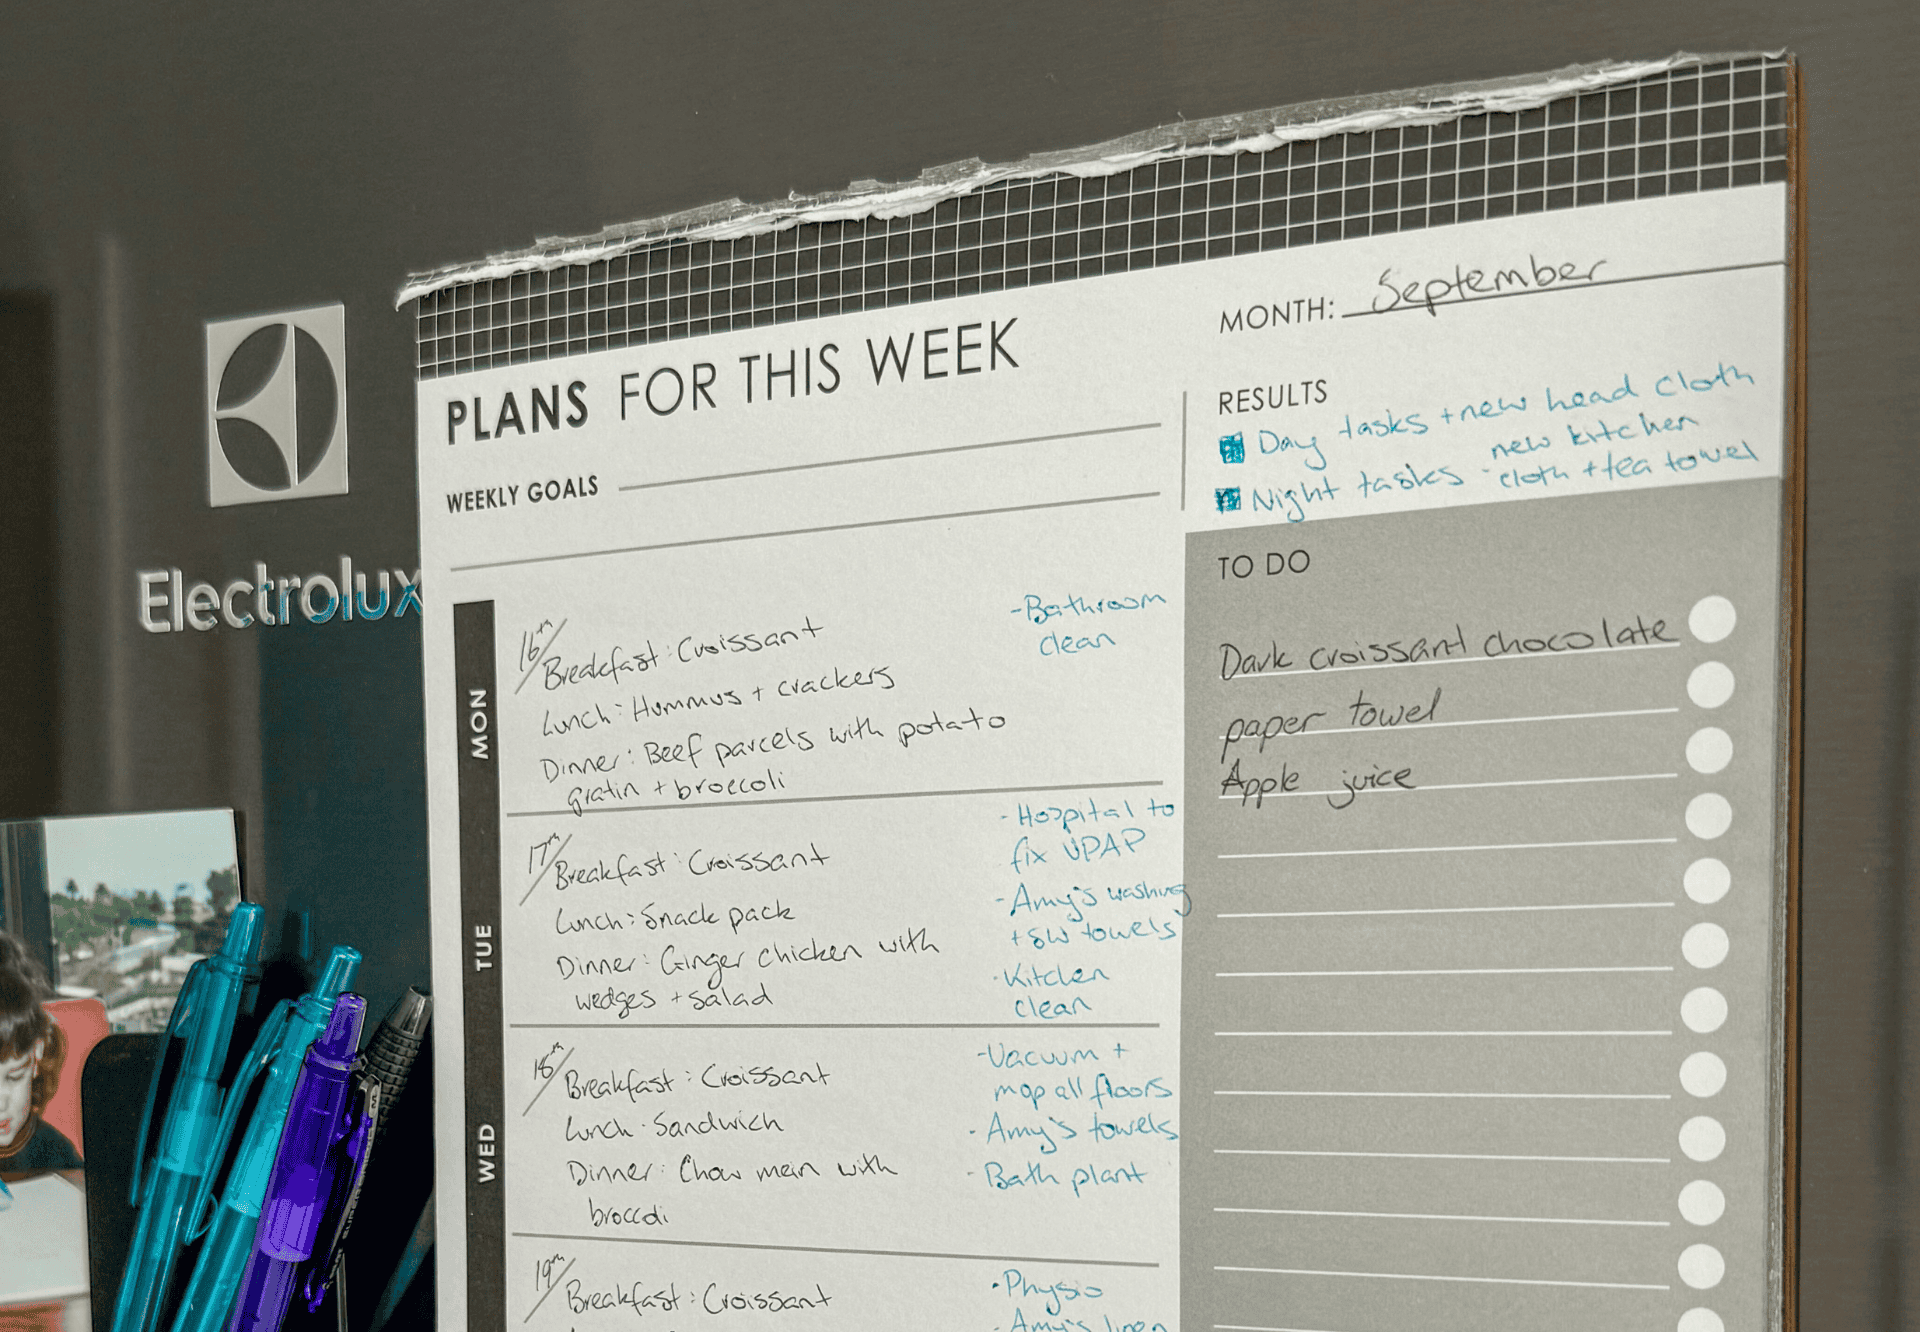 Electrolux
PLANS FOR THIS WEEK
WEEKLY GOALS
MONTH: September
RESULTS
Day tasks + new head cloth
Night tasks - new kitchen
cloth + tea towel
MON
16th
Breakfast: Croissant
Lunch: Hummus + crackers
Dinner: Beef parcels with potato
gratin + broccoli
- Bathroom
clean
TUE
17th
Breakfast: Croissant
Lunch: Snack pack
Dinner: Ginger chicken with
wedges + salad
- Hospital to
fix VPAP
- Amy's washing
+ SW towels
- Kitchen
clean
WED
18th
Breakfast: Croissant
Lunch: Sandwich
Dinner: Chow mein with
broccoli
- Vacuum +
mop all floors
- Amy's towels
- Bath plant
19th
Breakfast: Croissant
- Physio
- Amy's linen
TO DO
Dark croissant chocolate
paper towel
Apple juice